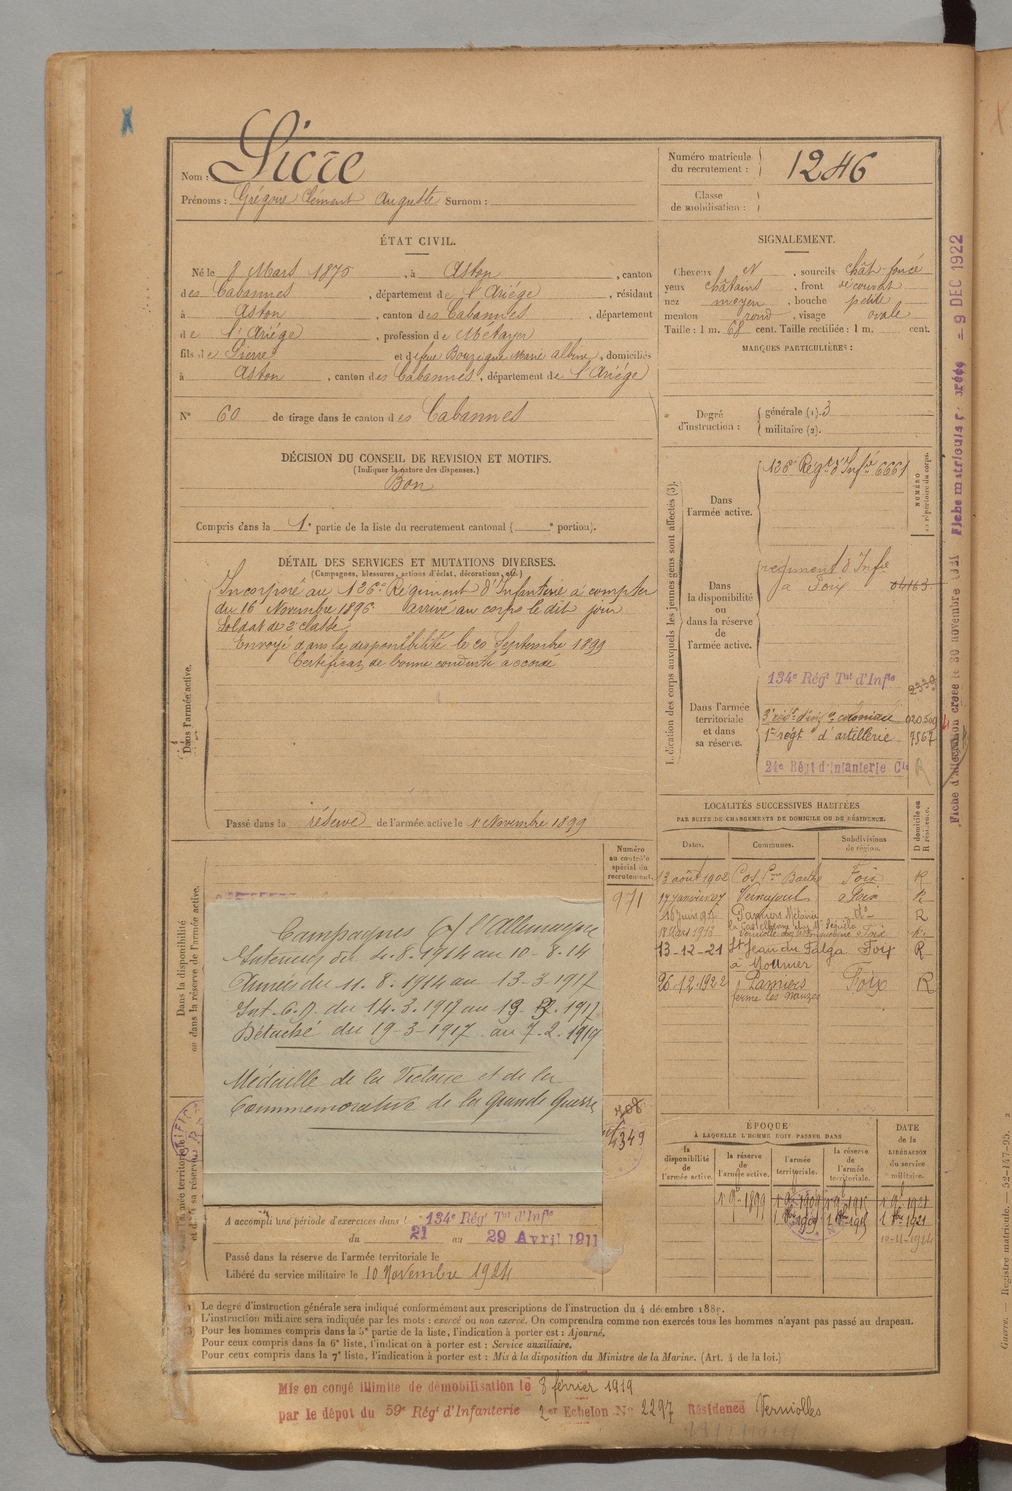 Nom : Sicre
Prénoms : Grégoire Clément Auguste Surnom :
Numéro matricule du recrutement : 1246
Classe de mobilisation :
ÉTAT CIVIL.
Né le 8 Mars 1875, à Aston, canton
des Cabannes, département de l'Ariége, résidant
à Aston, canton des Cabannes, département
de l'Ariége, profession de Métayer
fils de Pierre et de feue Bouzigue Marie Albine, domiciliés
à Aston, canton des Cabannes, département de l'Ariége
N° 60 de tirage dans le canton des Cabannes
SIGNALEMENT.
Cheveux et, sourcils chât-foncé
yeux châtains, front découvert
nez moyen, bouche petite
menton rond, visage ovale
Taille : 1 m. 68 cent. Taille rectifiée : 1 m. cent.
MARQUES PARTICULIÈRES :
Degré d'instruction : générale (1). 3
militaire (2).
DÉCISION DU CONSEIL DE REVISION ET MOTIFS.
(Indiquer la nature des dispenses.)
Bon
Compris dans la 1e partie de la liste du recrutement cantonal ( e portion).
DÉTAIL DES SERVICES ET MUTATIONS DIVERSES.
(Campagnes, blessures, actions d'éclat, décorations, etc.)
Dans l'armée active.
Incorporé au 126e Régiment d'Infanterie à compter
du 16 Novembre 1896 arrivé au corps le dit jour
Soldat de 2e classe
Envoyé dans la disponibilité le 20 Septembre 1899
Certificat de bonne conduite accordé
Passé dans la réserve de l'armée active le 1 Novembre 1899
Indication des corps auxquels les jeunes gens sont affectés (3).
NUMÉRO au répertoire du corps.
Dans l'armée active.
126e Régt d'Infie 6661
Dans la disponibilité ou dans la réserve de l'armée active.
régiment d'Infie
à Foix 04163
Dans l'armée territoriale et dans sa réserve.
134e Régt Tal d'Infie 2339
1er régt d'artillerie 7567
24e Régt d'Infanterie Cle R
LOCALITÉS SUCCESSIVES HABITÉES
PAR SUITE DE CHANGEMENTS DE DOMICILE OU DE RÉSIDENCE.
Dates. Communes. Subdivisions de région. D domicile ou R résidence.
13 août 1902 Foix R
17 janvier 07 Verniolle à Foix R
Pamiers Métairie do R
13-12-21 St Jean du Falga Foix R
à Mounier
26-12-1922 Pamiers Foix R
ferme les
Dans la disponibilité ou dans la réserve de l'armée active.
Numéro au contrôle spécial du recrutement.
971
Campagnes C/ l'Allemagne
Intérieur du 4.8.1914 au 10-8-14
Armées du 11.8.1914 au 13-3-1917
Int. C.D. du 14.3.1917 au 19.3.1917
Détaché du 19-3-1917 au 7.2.1919
Médaille de la Victoire et de la
Commémorative de la Grande Guerre
308
4349
A accompli une période d'exercices dans l 134e Régt Tal d'Infie
du 21 au 29 Avril 1911
Passé dans la réserve de l'armée territoriale le
Libéré du service militaire le 10 Novembre 1924
ÉPOQUE
À LAQUELLE L'HOMME DOIT PASSER DANS
la disponibilité de l'armée active. la réserve de l'armée active. l'armée territoriale. la réserve de l'armée territoriale. DATE de la LIBÉRATION du service militaire.
1 9b 1899 1 9b 1909 1 9b 1915 1 9b 1921
1 9bre 1909 1 9bre 1915 1 9bre 1921
10-11-1924
Le degré d'instruction générale sera indiqué conformément aux prescriptions de l'instruction du 4 décembre 1889.
L'instruction militaire sera indiquée par les mots : exercé ou non exercé. On comprendra comme non exercés tous les hommes n'ayant pas passé au drapeau.
Pour les hommes compris dans la 5e partie de la liste, l'indication à porter est : Ajourné.
Pour ceux compris dans la 6e liste, l'indication à porter est : Service auxiliaire.
Pour ceux compris dans la 7e liste, l'indication à porter est : Mis à la disposition du Ministre de la Marine. (Art. 4 de la loi.)
Mis en congé illimité de démobilisation le 8 février 1919
par le dépôt du 59e Régt d'Infanterie 2er Echelon No 2297 Résidence Verniolles
Fiche d'allocation créée le 30 novembre 1921 Fiche matriculaire créée - 9 DEC 1922
Guerre. — Registre matricule. — 52-147-95.